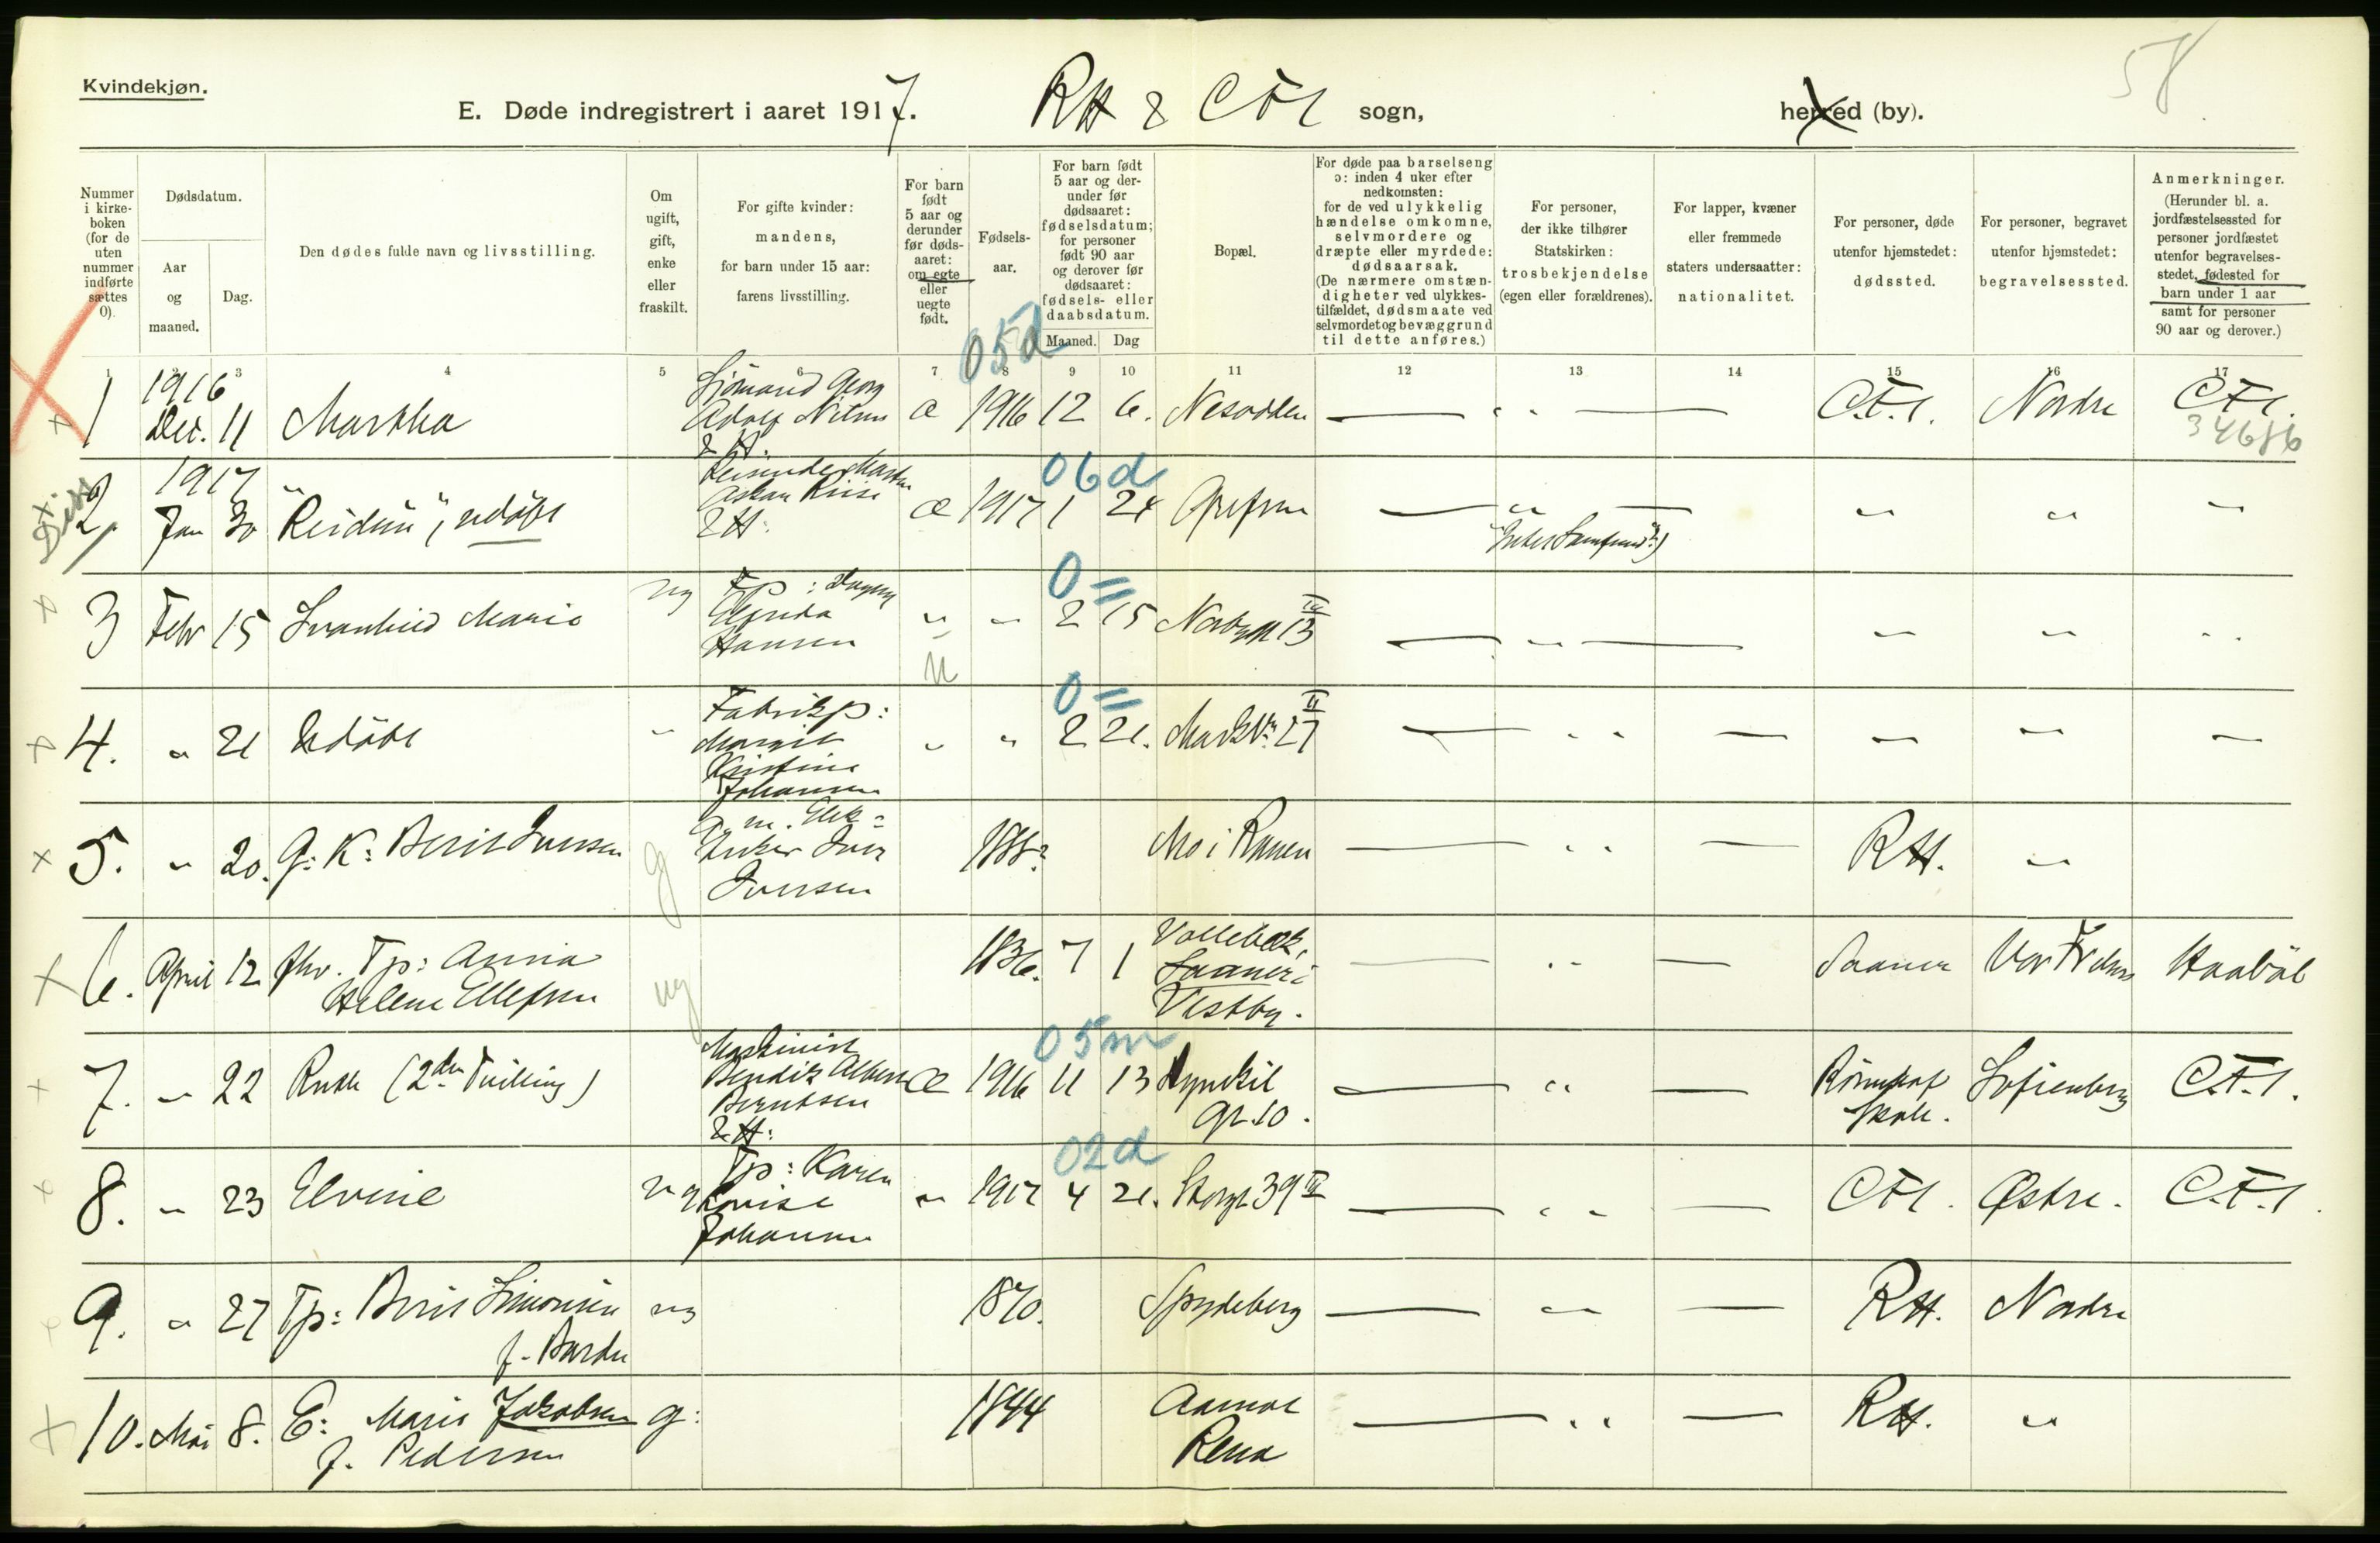 Kvindekjøn.
58
E. Døde indregistrert i aaret 1917. RH & CFI sogn, herred (by).
Nummer i kirkeboken (for de uten nummer indførte sættes 0).
Dødsdatum.
Aar og maaned.
Dag.
Den dødes fulde navn og livsstilling.
Om ugift, gift, enke eller fraskilt.
For gifte kvinder: mandens, for barn under 15 aar: farens livsstilling.
For barn født 5 aar og derunder før dødsaaret: om egte eller uegte født.
Fødselsaar.
For barn født 5 aar og derunder før dødsaaret: fødselsdatum; for personer født 90 aar og derover før dødsaaret: fødsels- eller daabsdatum.
Maaned. Dag
Bopæl.
For døde paa barselseng ɔ: inden 4 uker efter nedkomsten: for de ved ulykkelig hændelse omkomne, selvmordere og dræpte eller myrdede: dødsaarsak. (De nærmere omstændigheter ved ulykkestilfældet, dødsmaate ved selvmordet og bevæggrund til dette anføres.)
For personer, der ikke tilhører Statskirken: trosbekjendelse (egen eller forældrenes).
For lapper, kvæner eller fremmede staters undersaatter: nationalitet.
For personer, døde utenfor hjemstedet: dødssted.
For personer, begravet utenfor hjemstedet: begravelsessted.
Anmerkninger. (Herunder bl. a. jordfæstelsessted for personer jordfæstet utenfor begravelsesstedet, fødested for barn under 1 aar samt for personer 90 aar og derover.)
1 2 3 4 5 6 7 8 9 10 11 12 13 14 15 16 17
05d
1 1916 Dec. 11 Martha Sjömand Georg Adolf Nilsen & H. Æ 1916 12 6. Nesodden — „ — C.F.I. Nordre CFI. 34686
06d
2. 1917 Jan 30 "Reidun", udöbt & H: Æ 1917 1 24 Grefsen — „ — „ „ „
0 =
3 Febr 15 Svanhild Marie ug Fp: Dagny Elfrida Hansen „ u „ 2 15 Norbygt 13 IV — „ — „ „ „
0 =
4. „ 21 Udöbt „ Fabrikp: Margit Kristine Johansen „ „ 2 21. Markvn 27 II — „ — „ „ „
5. „ 20. G: K: Berit Iversen g Iver Iversen 188? Mo i Ranen — „ — RH. „
6. April 12 fhv. Tp: Anna Helene Ellefsen ug 1836. 7 1 Vollebæk, Saaner i Vestby. — „ — Saaner Vor Frelsers Haaböl
05m
7. „ 22 Ruth (2den Tvilling) Maskinist Bendik Albert Berntsen & H: Æ 1916 11 13 gt 10. — „ — skole. Sofienberg C.F.I.
02d
8. „ 23 Elvine ug Tp: Karen Lovise Johansen „ 1917 4 21. Storgt 39 III — „ — CFI. Østre. C.F.I.
9. „ 27 Tp: Berit Simonsen f. Bardu ug 1870. Spydeberg — „ — RH. Nordre
10. Mai 8. E: Marie Jakobsen f. Pedersen g: 1844 Aamot Rena — „ — RH. „